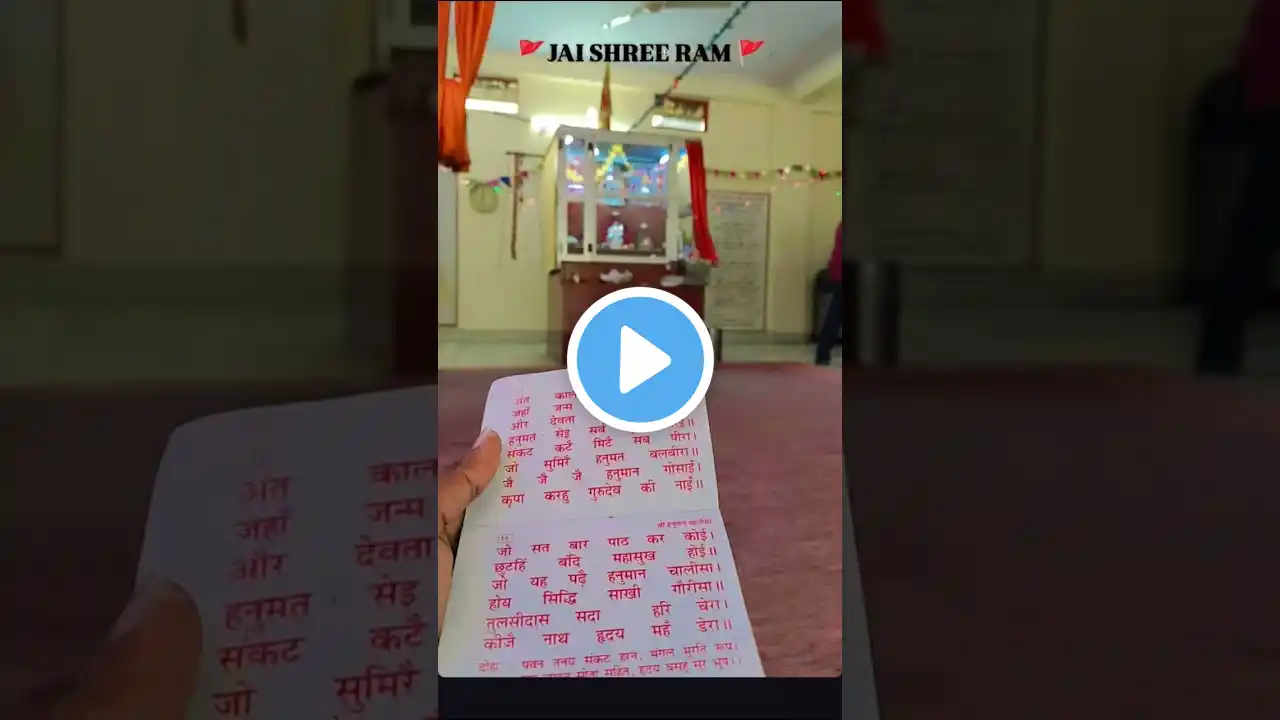 JAI SHREE RAM
अंत काल
जहाँ जन्म
और देवता
हनुमत सेइ सर्ब
संकट कटै मिटै सब पीरा।
जो सुमिरै हनुमत बलबीरा॥
जै जै जै हनुमान गोसाईं।
कृपा करहु गुरुदेव की नाईं॥
श्री हनुमान चालीसा
जो सत बार पाठ कर कोई।
छूटहिं बंदि महासुख होई॥
जो यह पढ़ै हनुमान चालीसा।
होय सिद्धि साखी गौरीसा॥
तुलसीदास सदा हरि चेरा।
कीजै नाथ हृदय महँ डेरा॥
दोहा पवन तनय संकट हरन, मंगल मूरति रूप।
सीता सहित, हृदय बसहु सुर भूप।।
अंत काल
जहाँ जन्म
और देवता
हनुमत सेइ
संकट कटै
जो सुमिरै